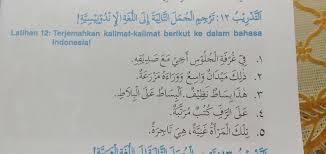 التَّدْرِيبُ ١٢: تَرْجِمِ الْجُمَلَ التَّالِيَةَ إِلَى اللُّغَةِ الْإِنْدُونِيسِيَّةِ!
Latihan 12: Terjemahkan kalimat-kalimat berikut ke dalam bahasa
Indonesia!
١. فِي غُرْفَةِ الْجُلُوْسِ أَخِيْ مَعَ صَدِيْقِهِ.
٢. ذَلِكَ مَيْدَانٌ وَاسِعٌ وَوَرَاءَهُ مَزْرَعَةٌ.
٣. هَذَا بِسَاطٌ نَظِيْفٌ. اَلْبِسَاطُ عَلَى الْبِلَاطِ.
٤. عَلَى الرَّفِّ كُتُبٌ مُرَتَّبَةٌ.
٥. تِلْكَ الْمَرْأَةُ غَنِيَّةٌ، هِيَ تَاجِرَةٌ.